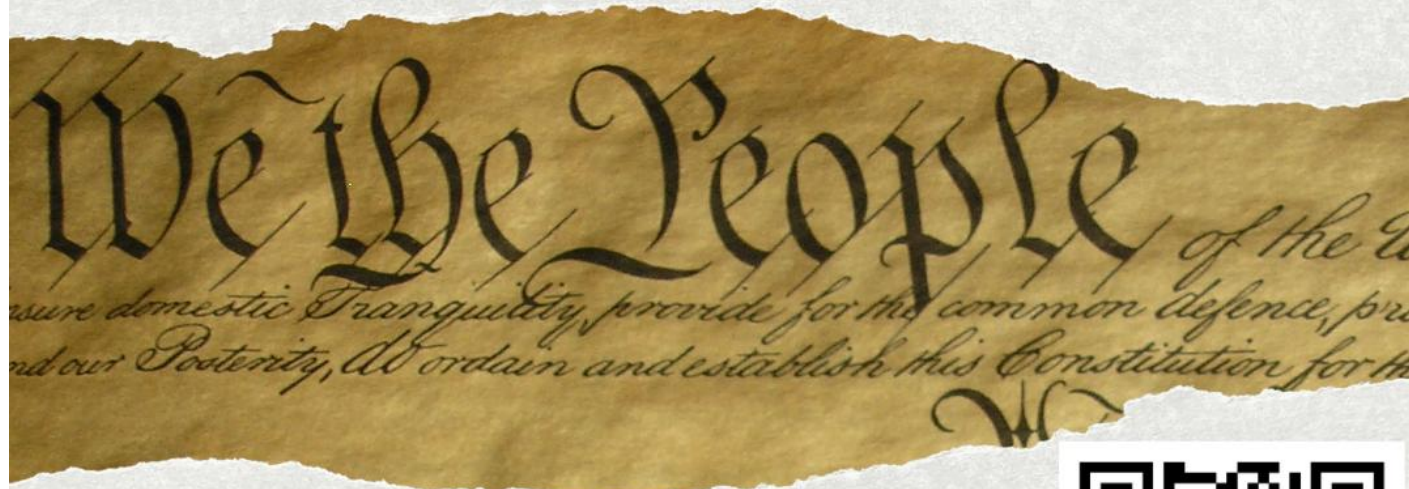 We the People of the
domestic Tranquility, provide for the common defence,
our Posterity, do ordain and establish this Constitution for